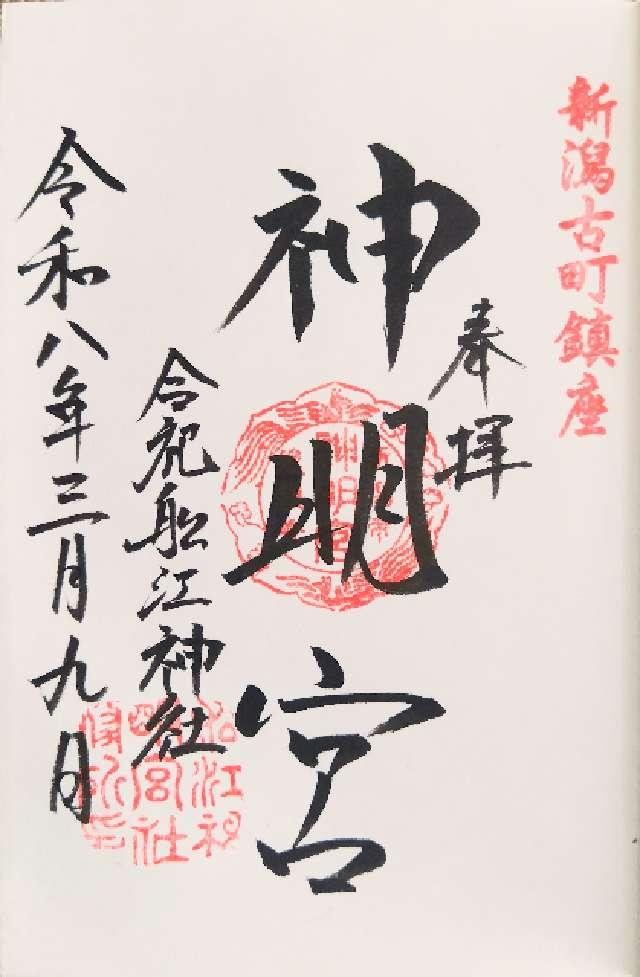 新潟古町鎮座
奉拝
神明宮
合祀船江神社
令和八年三月九日